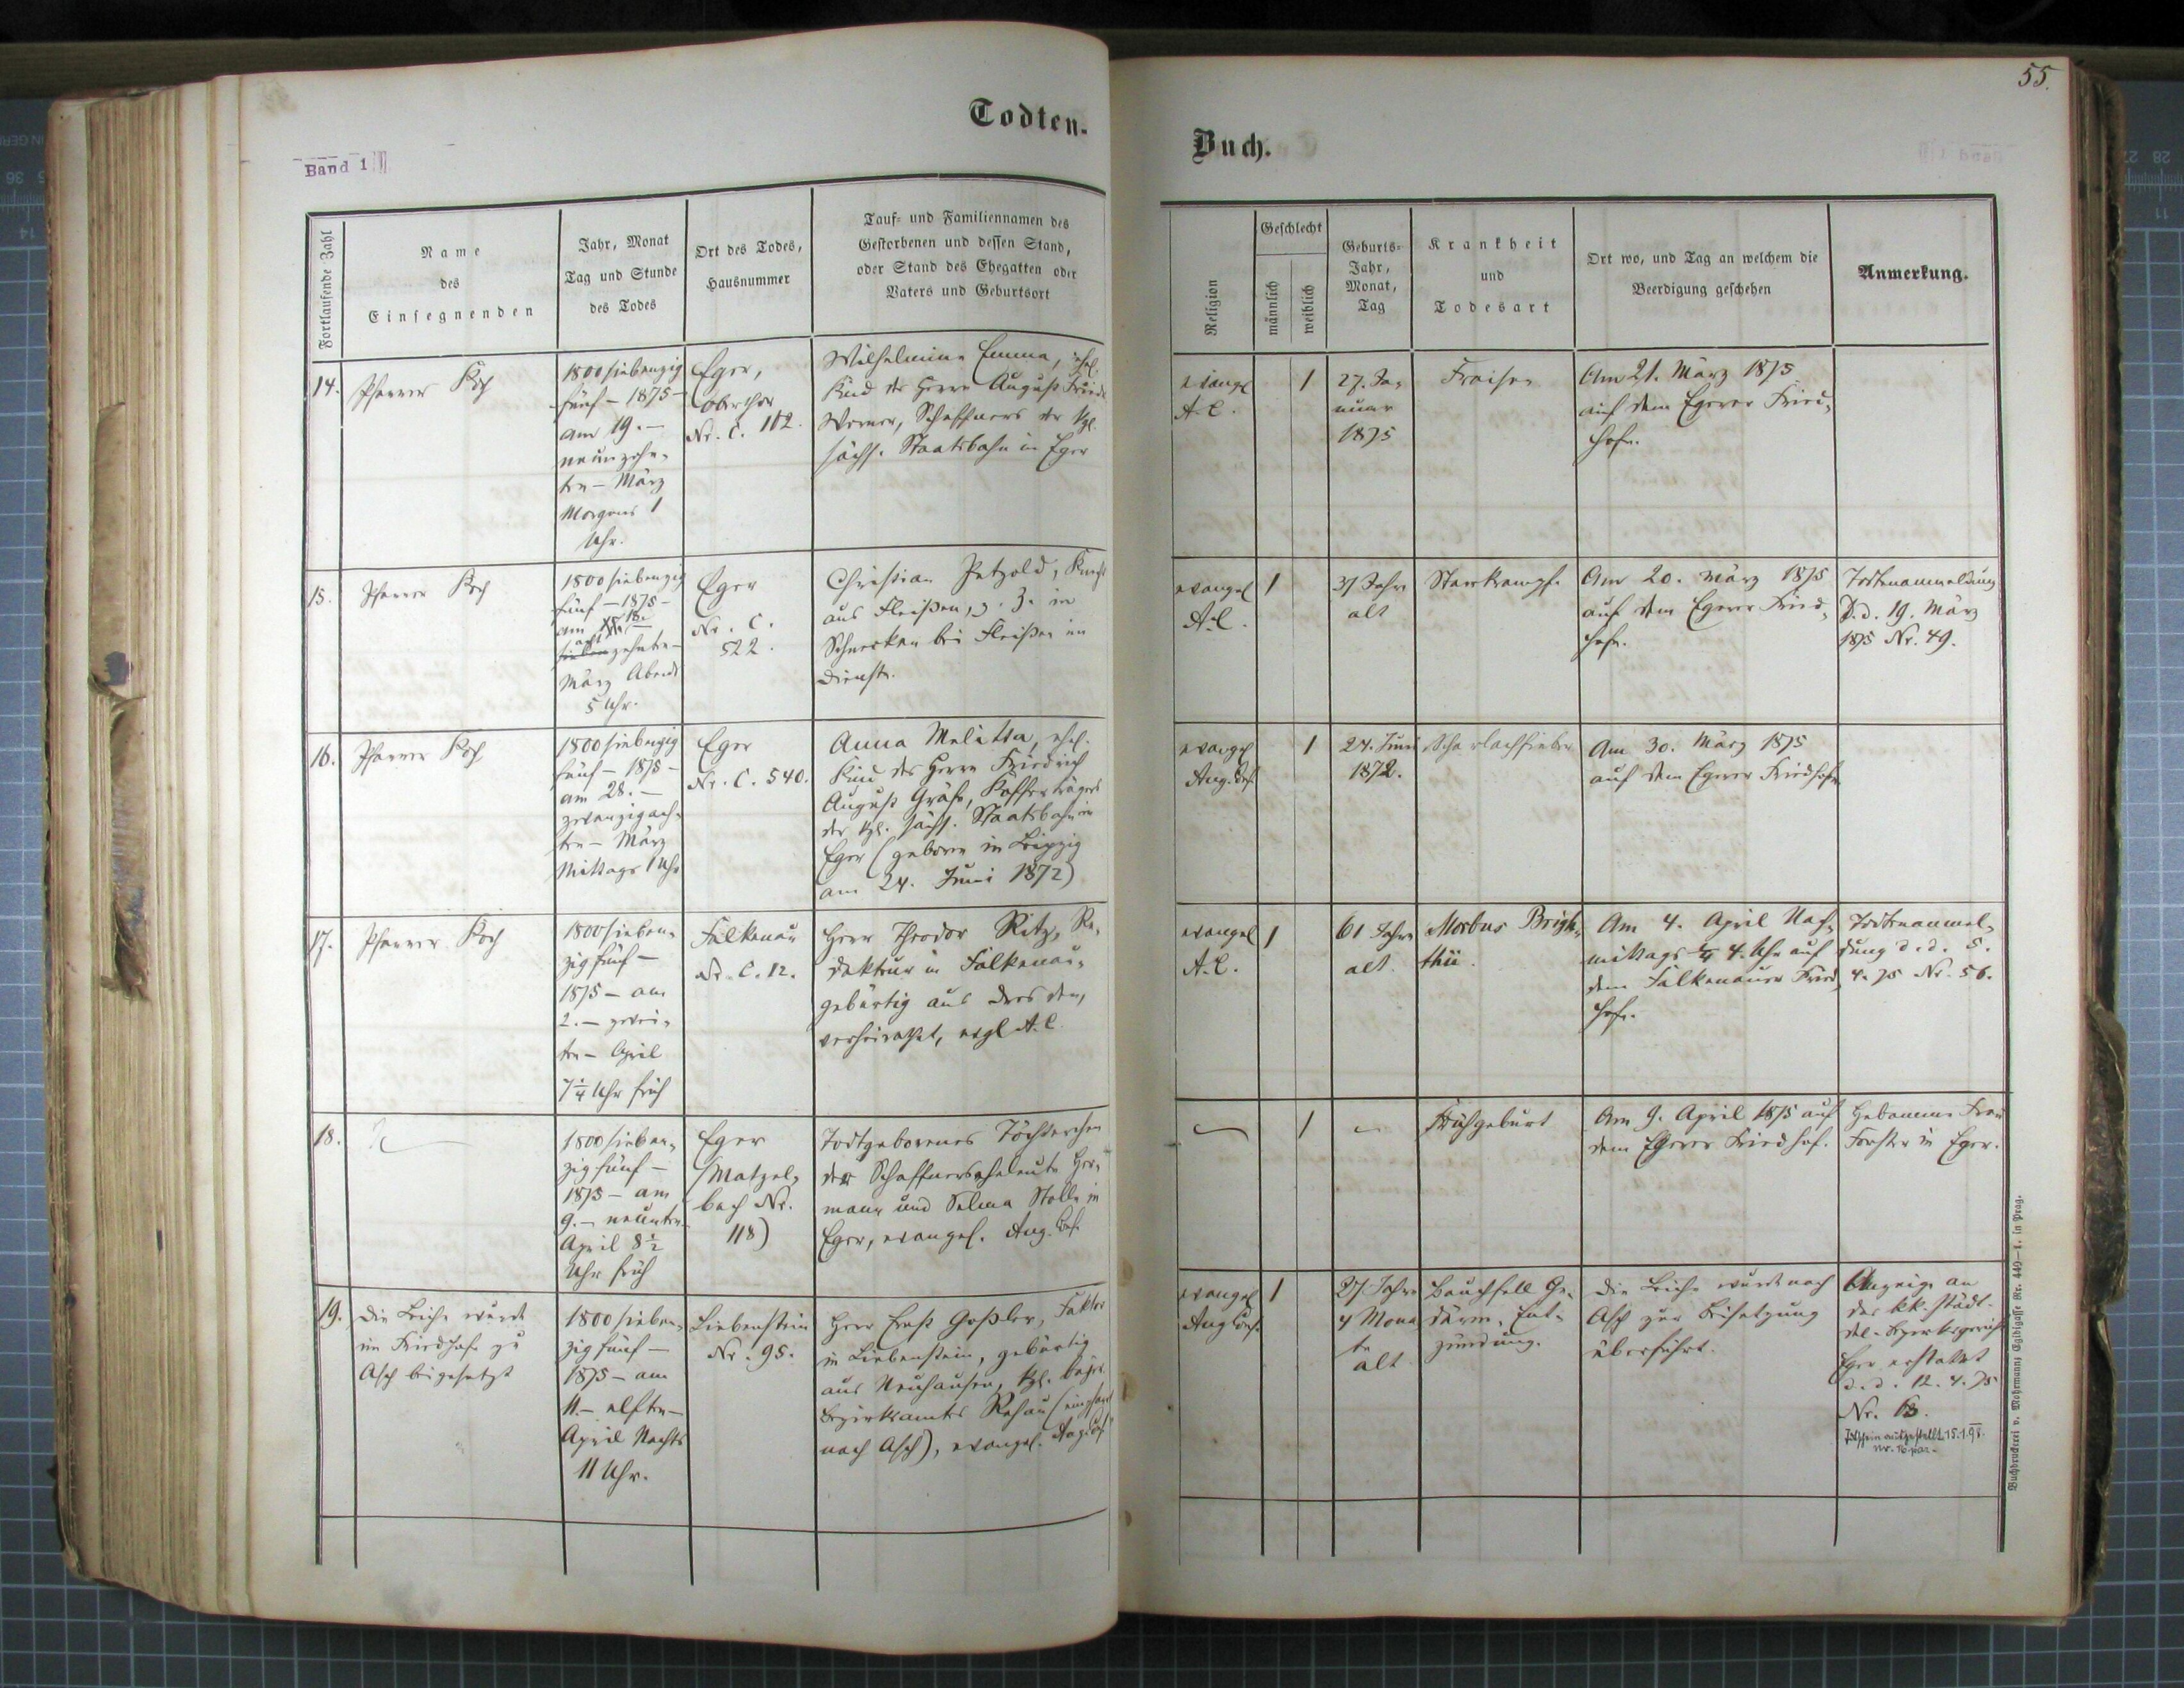 55.
Todten-
Buch.
Band 1
Fortlaufende Zahl
Name
des
Einsegnenden
Jahr, Monat
Tag und Stunde
des Todes
Ort des Todes,
Hausnummer
Tauf- und Familiennamen des
Gestorbenen und dessen Stand,
oder Stand des Ehegatten oder
Vaters und Geburtsort
Religion
Geschlecht
männlich
weiblich
Geburts-
Jahr,
Monat,
Tag
Krankheit
und
Todesart
Ort wo, und Tag an welchem die
Beerdigung geschehen
Anmerkung.
14.
Pfarrer Koch
1800 siebenzig
fünf - 1875 -
am 19. -
neunzehn-
ten - März
Morgens 1
Uhr.
Eger,
Oberthor
Nr. C. 112.
Wilhelmine Emma, ehel.
Kind des Herrn August Friedr.
Werner, Schaffners der kgl.
sächs. Staatsbahn in Eger
evangel
A. C.
1
27. Ja-
nuar
1875
Fraisen
Am 21. März 1875
auf dem Egerer Fried-
hofe.
15.
Pfarrer Koch
1800 siebenzig
fünf - 1875 -
am 18. -
acht
siebenzehnten -
März Abends
5 Uhr.
Eger
Nr. C.
522.
Christian Petzold, Knecht
aus Fleißen, z. Z. in
Schnecken bei Fleißen im
Dienste.
evangel
A. C.
1
31 Jahre
alt
Starrkrampf.
Am 20. März 1875
auf dem Egerer Fried-
hofe.
Todtenanmeldung
d. d. 19. März
1875 Nr. 49.
16.
Pfarrer Koch
1800 siebenzig
fünf - 1875 -
am 28. -
zwanzigach-
ten - März
Mittags 1 Uhr
Eger
Nr. C. 540.
Anna Melitta, ehel.
Kind des Herrn Friedrich
August Gräfe, Kofferträgers
der kgl. sächs. Staatsbahn in
Eger (geboren in Leipzig
am 24. Juni 1872)
evangel
Aug. Bek.
1
24. Juni
1872.
Scharlachfieber
Am 30. März 1875
auf dem Egerer Friedhofe
17.
Pfarrer Koch
1800 sieben-
zig fünf -
1875 - am
2. - zwei-
ten - April
7 1/4 Uhr früh
Falkenau
Nr. C. 12.
Herr Theodor Ritz, Re-
dakteur in Falkenau,
gebürtig aus Dresden,
verheirathet, evgl A. C.
evangel
A. C.
1
61 Jahre
alt.
Morbus Brigh-
thii.
Am 4. April Nach-
mittags 4. Uhr auf
dem Falkenauer Fried-
hofe.
Todtenanmel-
dung d. d. 5.
4. 75 Nr. 56.
18.
1800 sieben-
zig fünf -
1875 - am
9. - neunten -
April 8 1/2
Uhr früh
Eger
(Matzel-
bach Nr.
118)
Todtgeborenes Töchterchen
der Schaffnerseheleute Her-
mann und Selma Stolle in
Eger, evangel. Aug. Bek.
1
Frühgeburt
Am 9. April 1875 auf
dem Egerer Friedhof.
Hebamme Frau
Forster in Eger.
19.
Die Leiche wurde
im Friedhofe zu
Asch beigesetzt
1800 sieben-
zig fünf -
1875 - am
11. - elften -
April Nachts
11 Uhr.
Liebenstein
Nr. 95.
Herr Ernst Goßler, Faktor
in Liebenstein, gebürtig
aus Neuhausen, kgl. bayr.
Bezirksamts Rehau (eingepfarrt
nach Asch), evangel. Aug. Bek.
evangel
Aug. Bek.
1
27 Jahre
4 Mona-
te
alt
Bauchfell Ge-
därm, Ent-
zündung.
Die Leiche wurde nach
Asch zur Beisetzung
überführt.
Anzeige an
das kk. städt.
del. Bezirksgericht
Eger erstattet
d. d. 12. 4. 75
Nr. 63.
Todtschein ausgestellt 15.1.98
Buchdruckerei v. Mohrmann Egidigasse Nr. 449-I. in Prag.